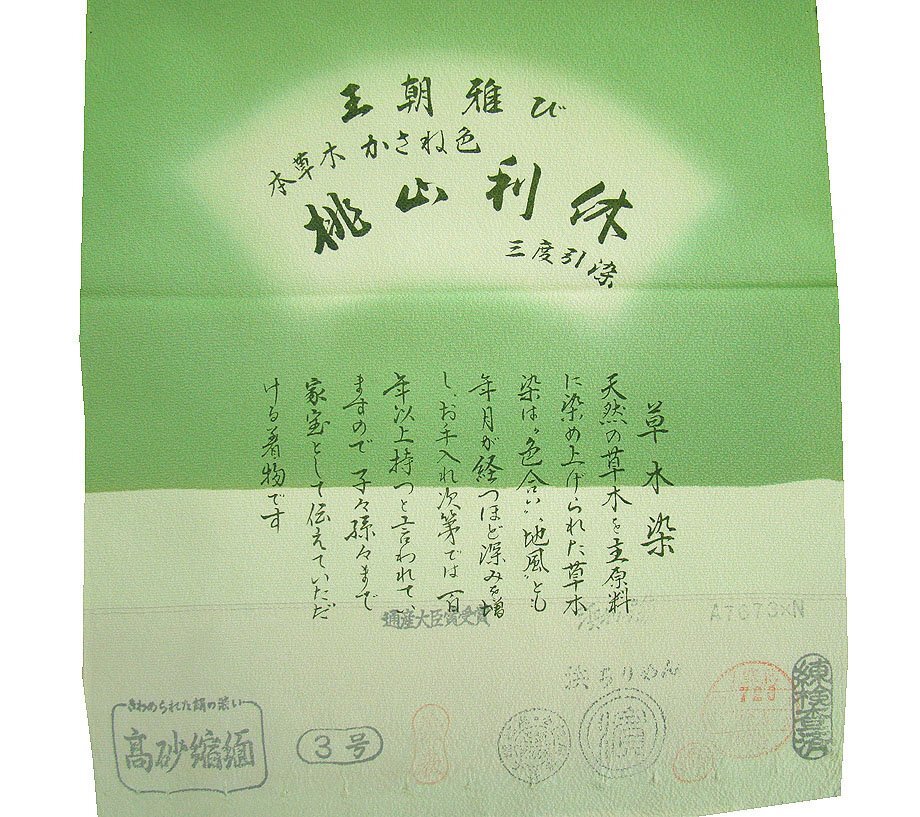 王朝雅び
本草木かさね色
桃山利休
三度引染
草木染
天然の草木を主原料
に染め上げられた草木
染は“色合い”“地風”とも
年月が経つほど深みを増
し、お手入れ次第では百
年以上持つと言われてい
ますので子々孫々まで
家宝として伝えていただ
ける着物です
通産大臣賞受賞
A7673×N
浜ちりめん
720
練検査済
きわめられた絹の装い
高砂縮緬
3号